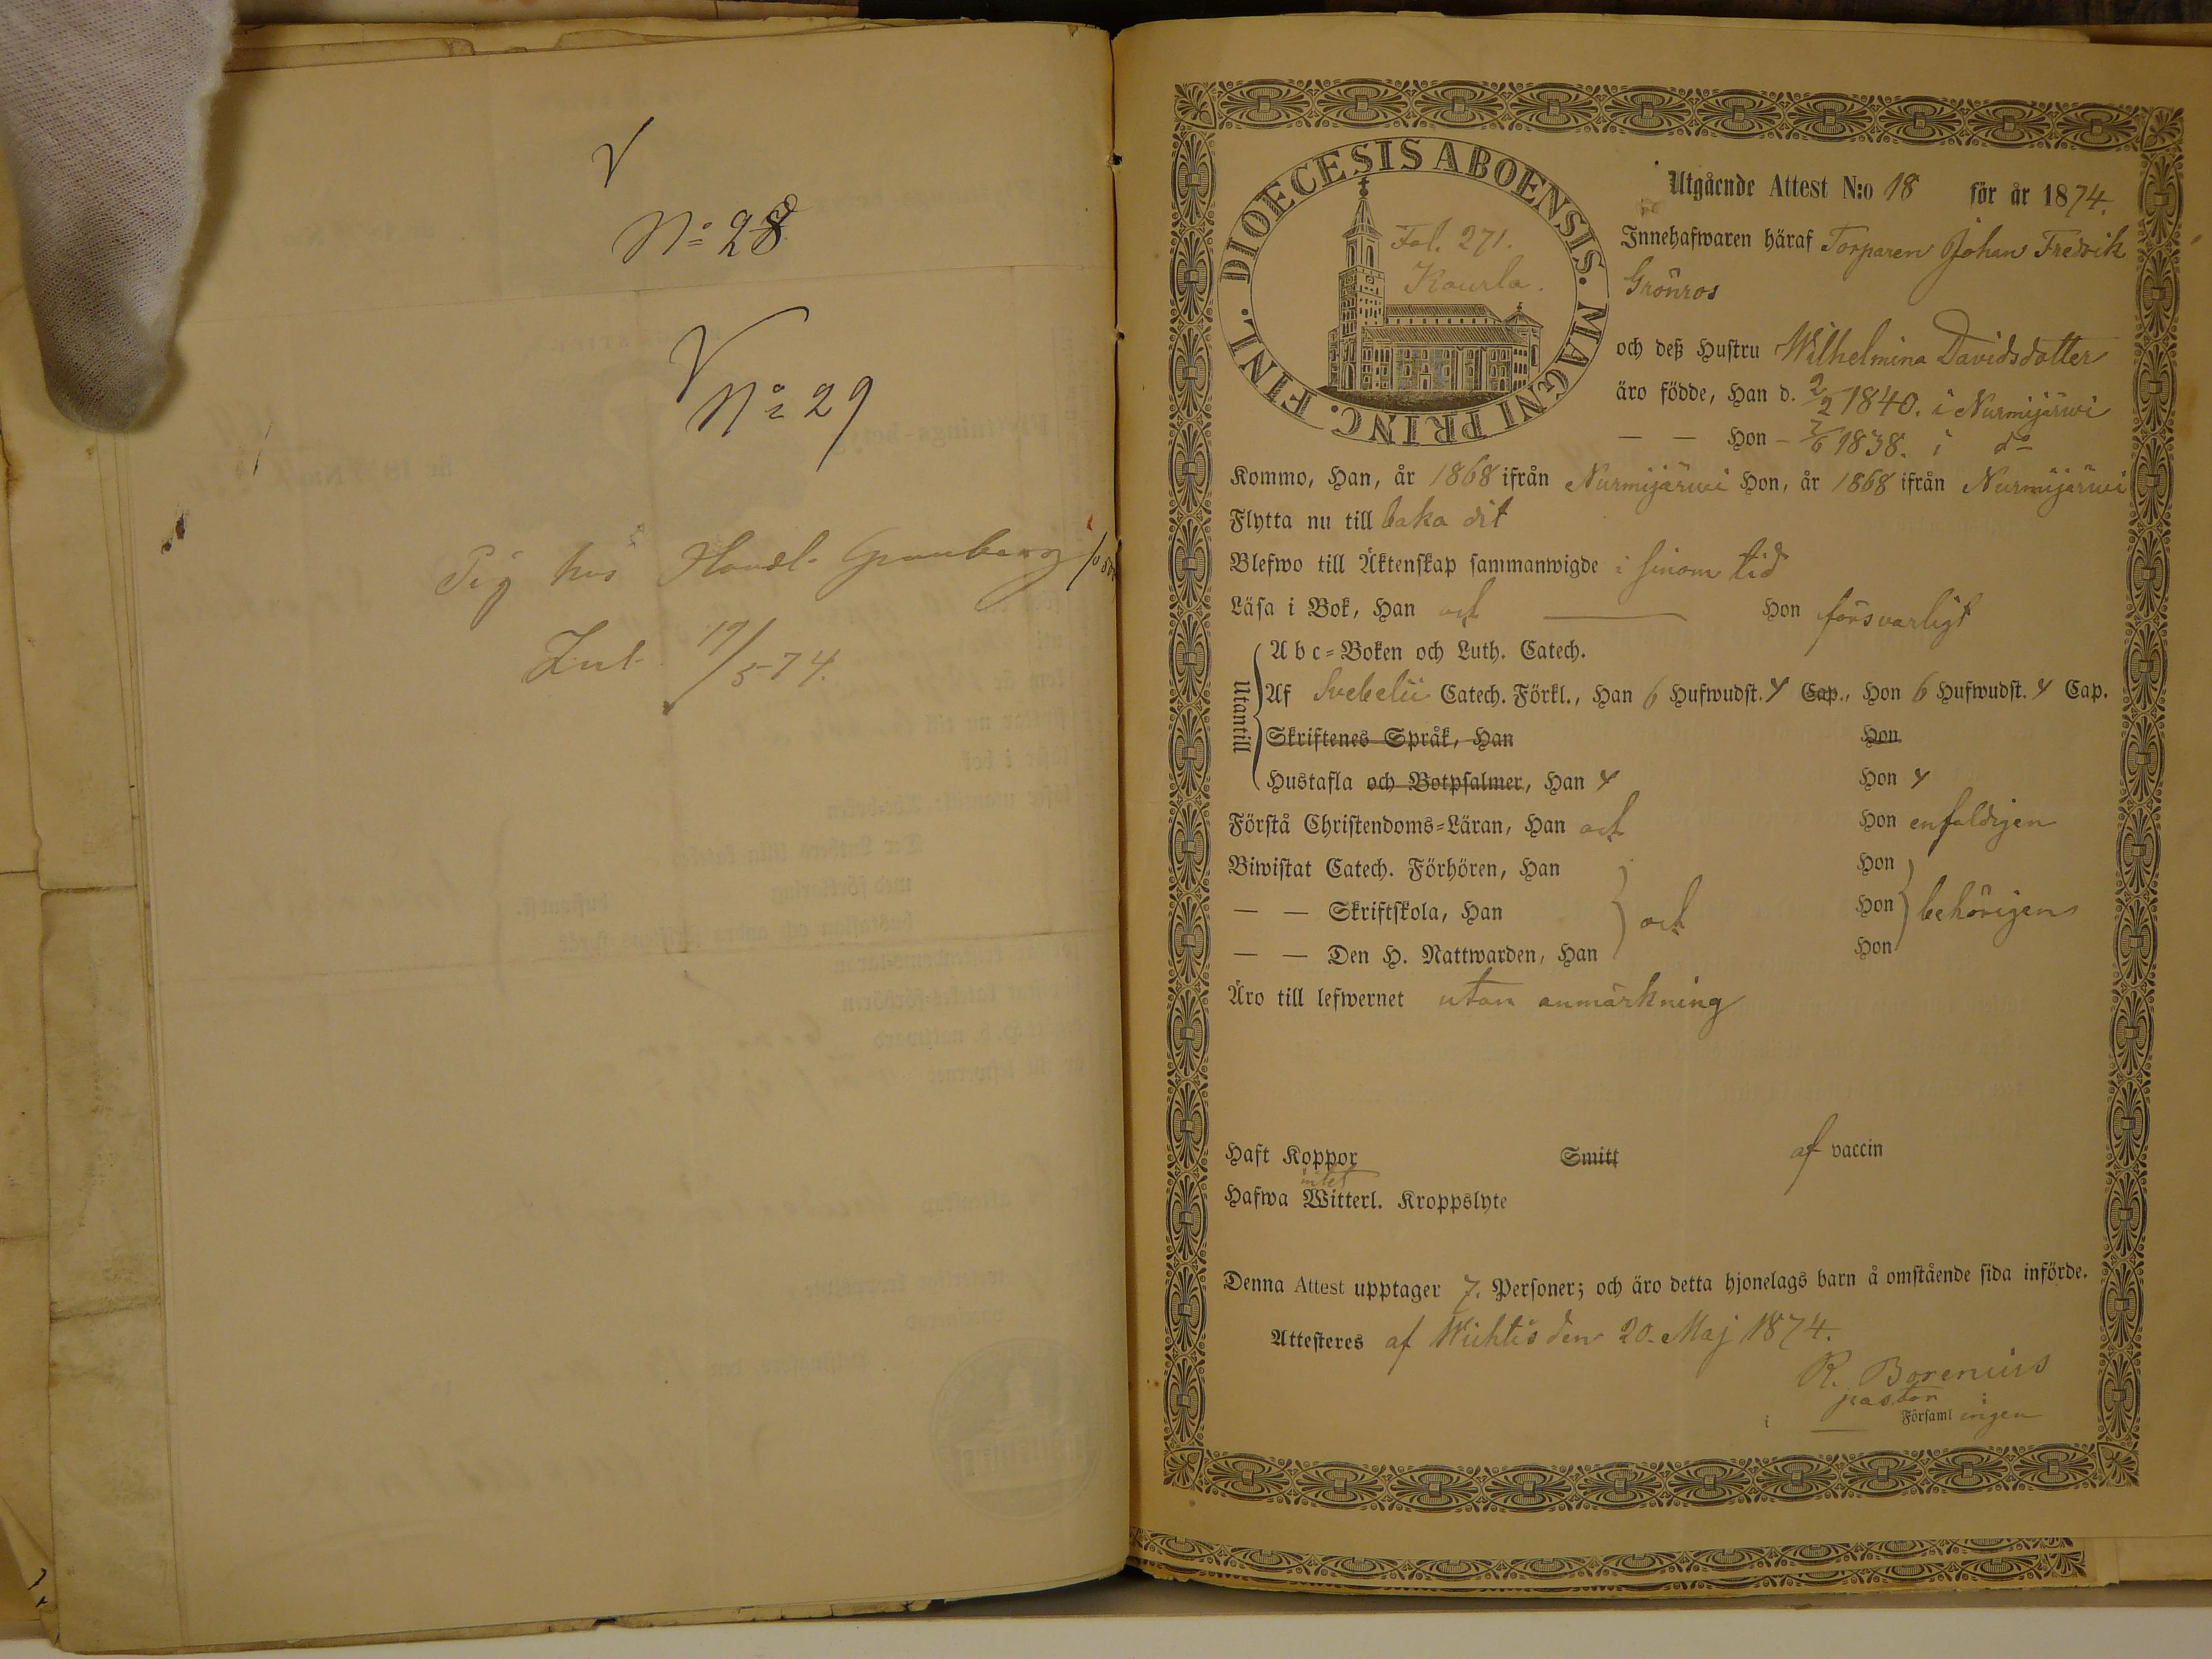 V
No 28
V
No 29
Pig hos Handl. Granberg
Inl. 19/5 74.
DIOECESIS ABOENSIS. MAGNI PRINC. FINL.
Fol. 271.
Kourla.
Utgående Attest N:o 18 för år 1874.
Innehafwaren häraf Torparen Johan Fredrik
Grönros
och deß Hustru Wilhelmina Davidsdotter
äro födde, Han d. 2/2 1840. i Nurmijärwi
— — Hon – 7/6 1838. i do
Kommo, Han, år 1868 ifrån Nurmijärwi Hon, år 1868 ifrån Nurmijärwi
Flytta nu till baka dit
Blefwo till Äktenskap sammanwigde i sinom tid
Läsa i Bok, Han och — Hon försvarligt
Utantill
Abc-Boken och Luth. Catech.
Af Svebelii Catech. Förkl., Han 6 Hufwudst. 4 Cap., Hon 6 Hufwudst. 4 Cap.
Skriftenes Språk, Han Hon
Hustafla och Botpsalmer, Han 4 Hon 4
Förstå Christendoms-Läran, Han och Hon enfaldigen
Biwistat Catech. Förhören, Han Hon
— — Skriftskola, Han och Hon behörigen
— — Den H. Nattwarden, Han Hon
Äro till lefwernet utan anmärkning
Haft Koppor Smitt af vaccin
intet
Hafwa Witterl. Kroppslyte
Denna Attest upptager 7. Personer; och äro detta hjonelags barn å omstående sida införde.
Attesteres af Wichtis den 20. Maj 1874.
R. Borenius
pastor
i — Församlingen